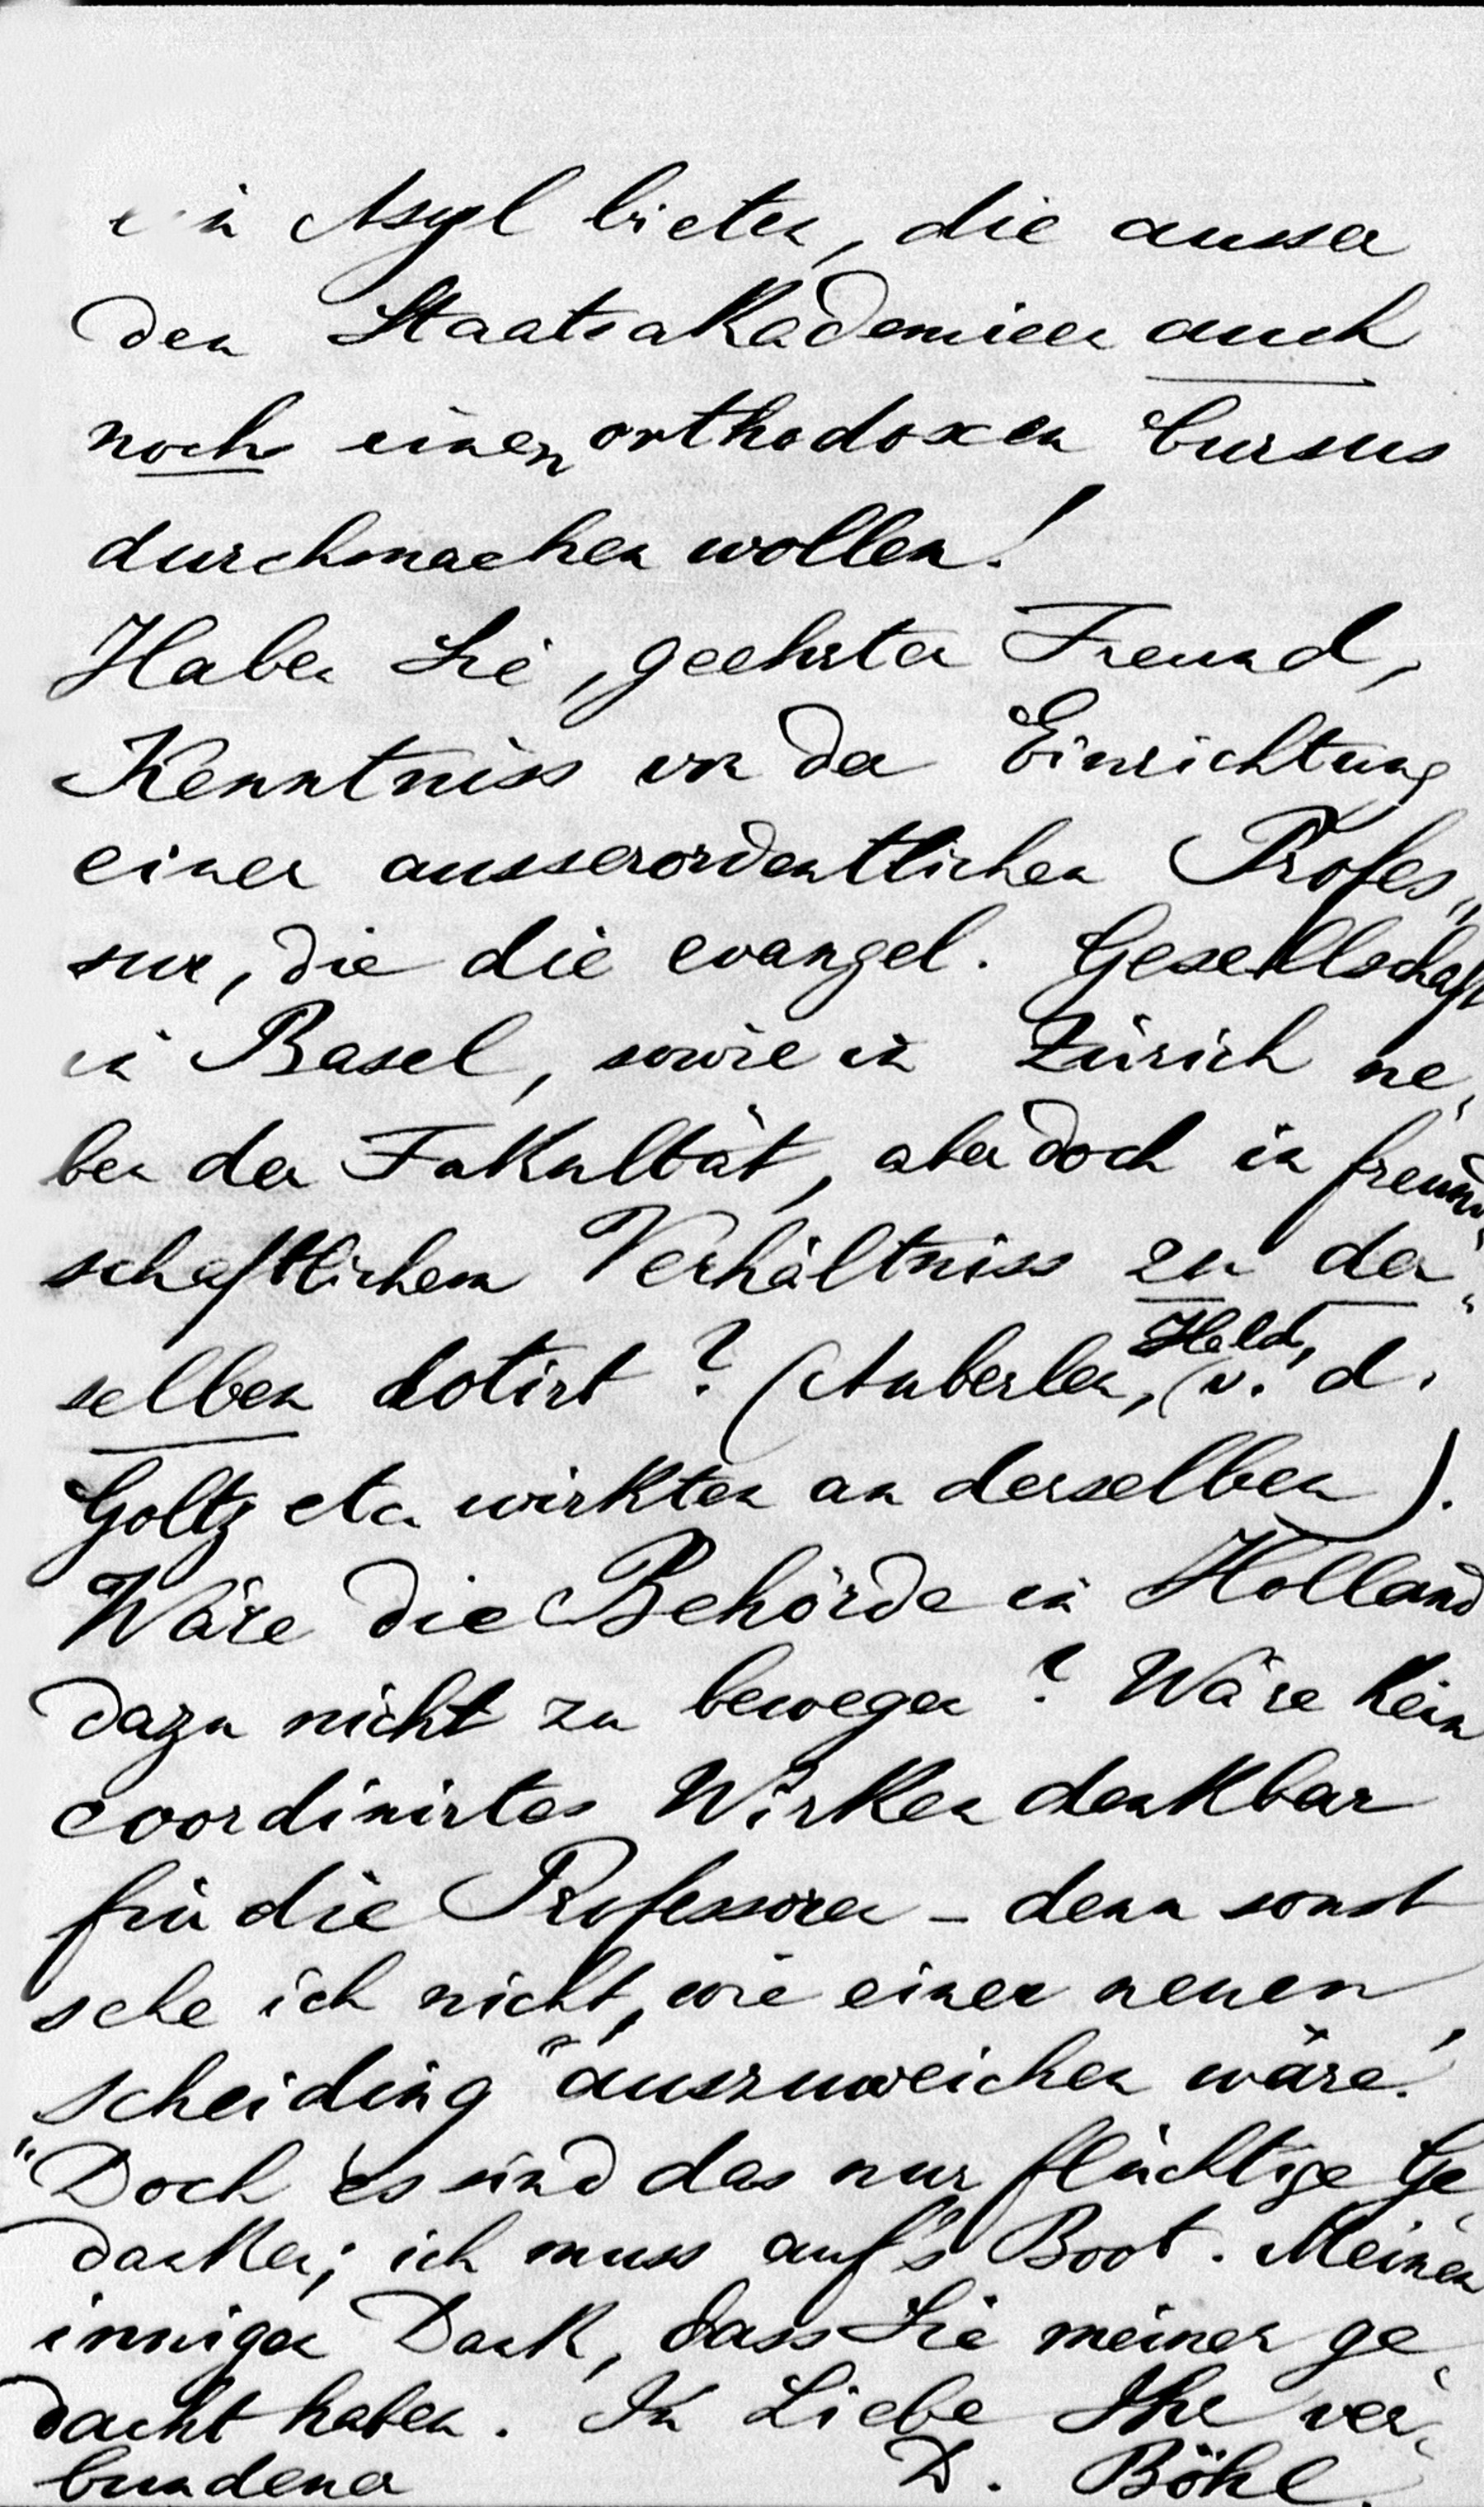 ein Asyl bieten, die ausser
den Staatsakademieen auch
noch einen orthodoxen Cursus
durchmachen wollen!
Haben Sie, geehrter Freund,
Kenntniss von der Einrichtung
einer ausserordentlichen Profes„
sur, die die evangel. Gesellschaft
in Basel, sowie in Zürich ne„
ben der Fakultät, aber doch in freund„
schaftlichem Verhältniss zu der„
selben dotirt? (Auberlen, Held, v. d.
Goltz etc. wirkten an derselben).
Wäre die Behörde in Holland
dazu nicht zu bewegen? Wäre kein
coordinirtes Wirken denkbar
für die Professoren – denn sonst
sehe ich nicht, wie einer neuen
„scheiding“ auszuweichen wäre!
Doch es sind das nur flüchtige Ge„
danken; ich muss auf's Boot. Meinen
innigen Dank, dass Sie meiner ge„
dacht haben. In Liebe Ihr ver„
bundener D. Böhl.